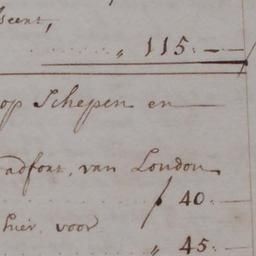 scent,
" 115.–
op Schepen en
adfort, van London
ƒ 40.
hier voor
" 45.